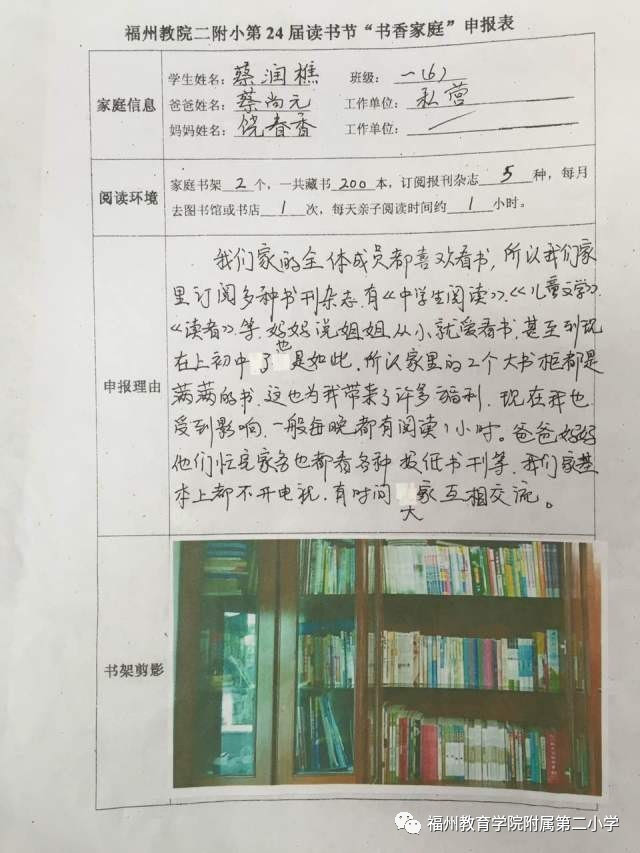 福州教院二附小第24届读书节“书香家庭”申报表
家庭信息
学生姓名：蔡润樵 班级：一（6）
爸爸姓名：蔡尚元 工作单位：私营
妈妈姓名：饶春香 工作单位：
阅读环境
家庭书架2个，一共藏书200本，订阅报刊杂志5种，每月
去图书馆或书店1次，每天亲子阅读时间约1小时。
申报理由
我们家的全体成员都喜欢看书，所以我们家
里订阅多种书刊杂志.有《中学生阅读》、《儿童文学》
《读者》等.妈妈说姐姐从小就爱看书.甚至到现
在上初中了也是如此.所以家里的2个大书柜都是
满满的书.这也为我带来了许多福利.现在我也
受到影响.一般每晚都有阅读1小时。爸爸妈妈
他们忙完家务也都看各种报纸书刊等.我们家基
本上都不开电视.有时间大家互相交流。
书架剪影
福州教育学院附属第二小学